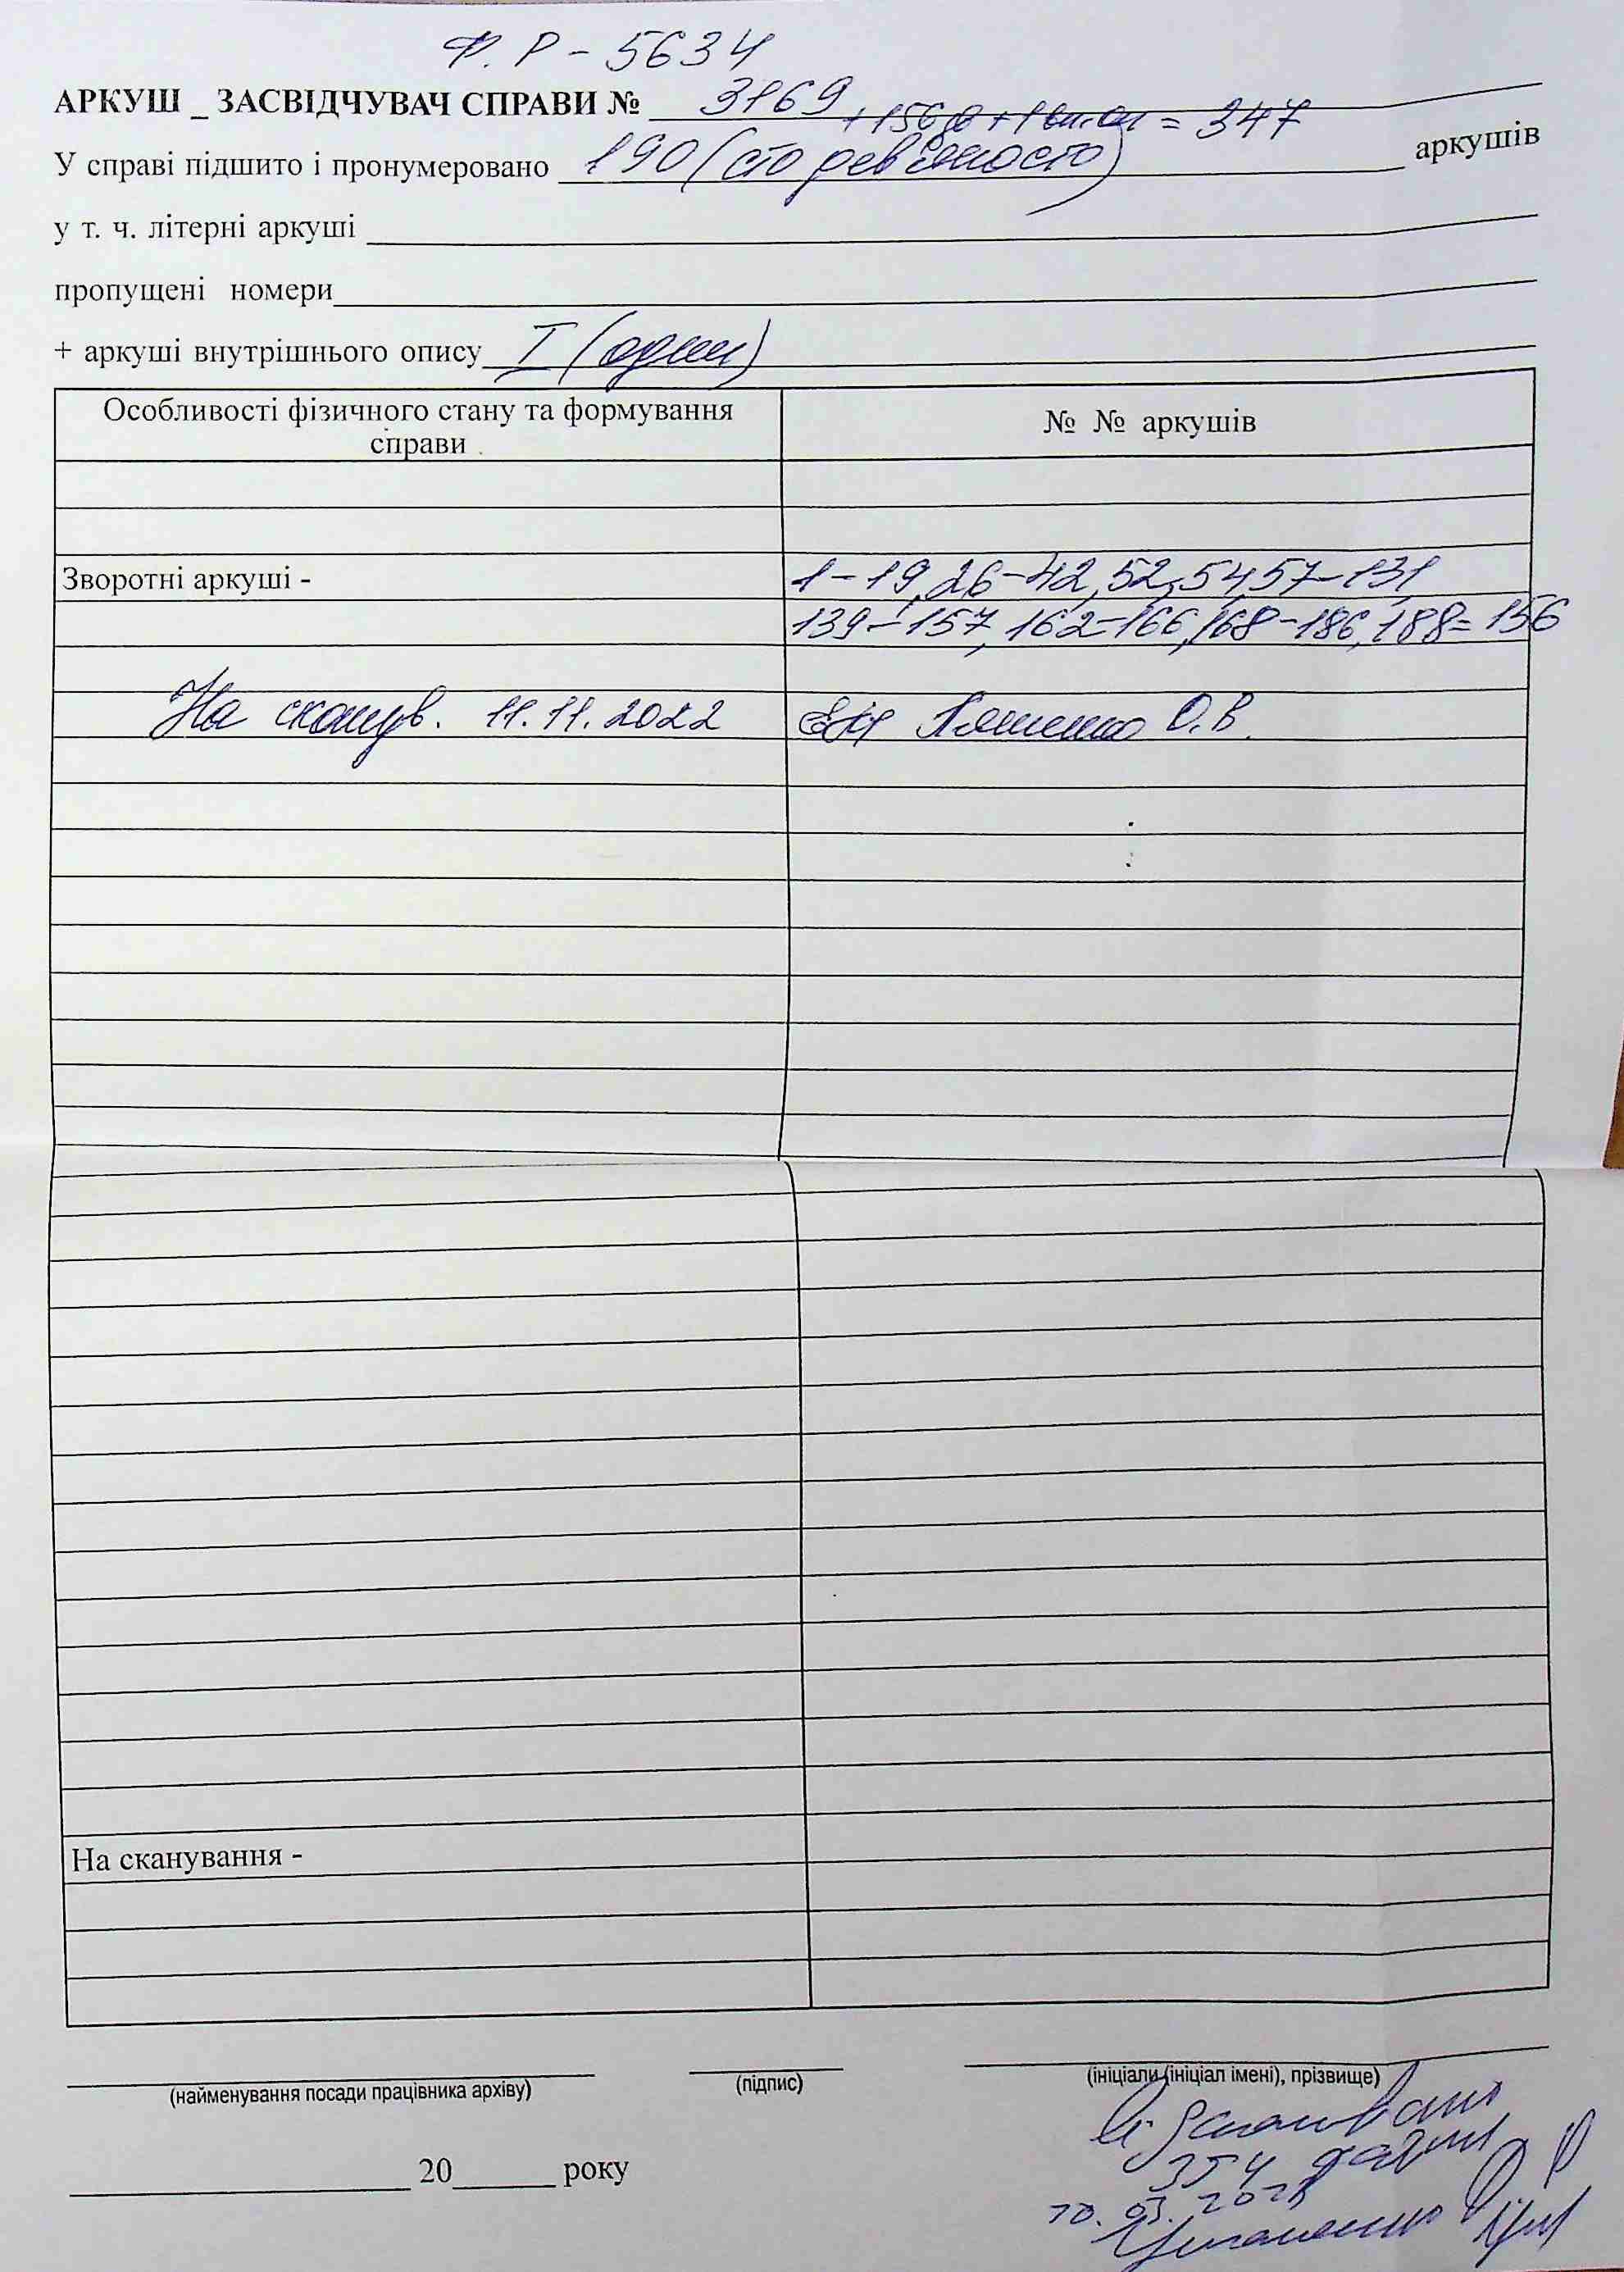 Ф. Р - 5634
АРКУШ _ ЗАСВІДЧУВАЧ СПРАВИ № 3169
+ 156 + 1 = 347
У справі підшито і пронумеровано 190 (сто дев'яносто) аркушів
у т. ч. літерні аркуші
пропущені номери
+ аркуші внутрішнього опису I (один)
Особливості фізичного стану та формування справи
№ № аркушів
Зворотні аркуші - 1-19, 26-42, 52, 54, 57-131
139-157, 162-166, 168-186, 188 = 156
На сканув. 11.11.2022 О.В.
На сканування -
(найменування посади працівника архіву) (підпис) (ініціали (ініціал імені), прізвище)
Відскановано
354
20 року